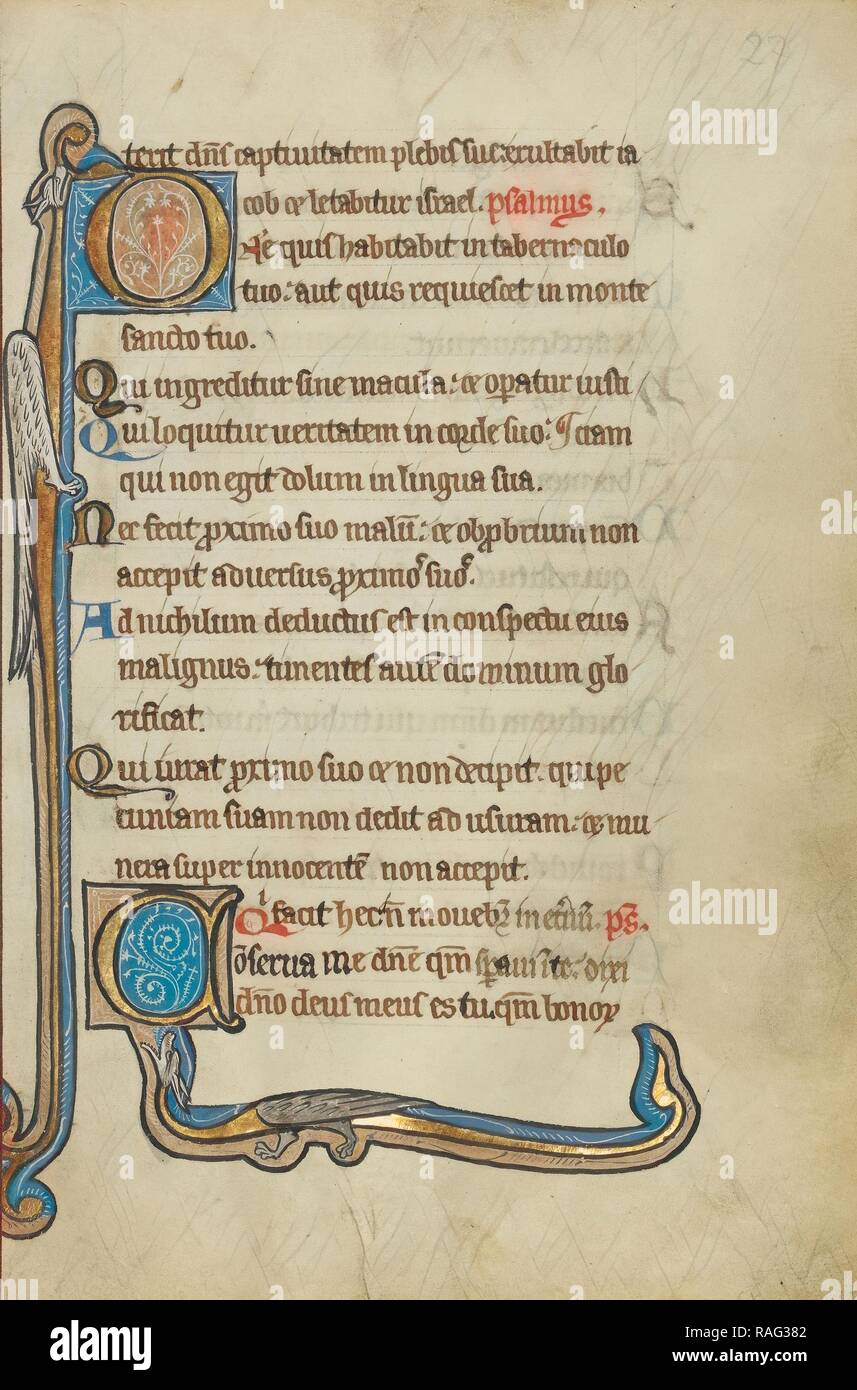 27
terit dn̄s captiuitatem plebis sue: exultabit ia
cob ⁊ letabitur israel. psalmus.
Dn̄e quis habitabit in tabernaculo
tuo: aut quis requiescet in monte
sancto tuo.
Qui ingreditur sine macula: ⁊ op̄atur iusti
Qui loquitur ueritatem in corde suo: ¶ ciam
qui non egit dolum in lingua sua.
Nec fecit ꝓximo suo malū: ⁊ obꝓbrium non
accepit aduersus ꝓximoꝰ suoꝰ.
Ad nichilum deductus est in conspectu eius
malignus: timentes autē dominum glo
rificat.
Qui iurat ꝓximo suo ⁊ non decipit. qui pe
cuniam suam non dedit ad usuram: ⁊ mu
nera super innocentē non accepit.
Qi facit hec n̄ mouebit᷑ in et̄nū. ps̄.
Cōserua me dn̄e qm̄ sp̄aui in te: dixi
dn̄o deus meus es tu. qm̄ bonoꝝ
alamy
alamy
Image ID: RAG382
www.alamy.com